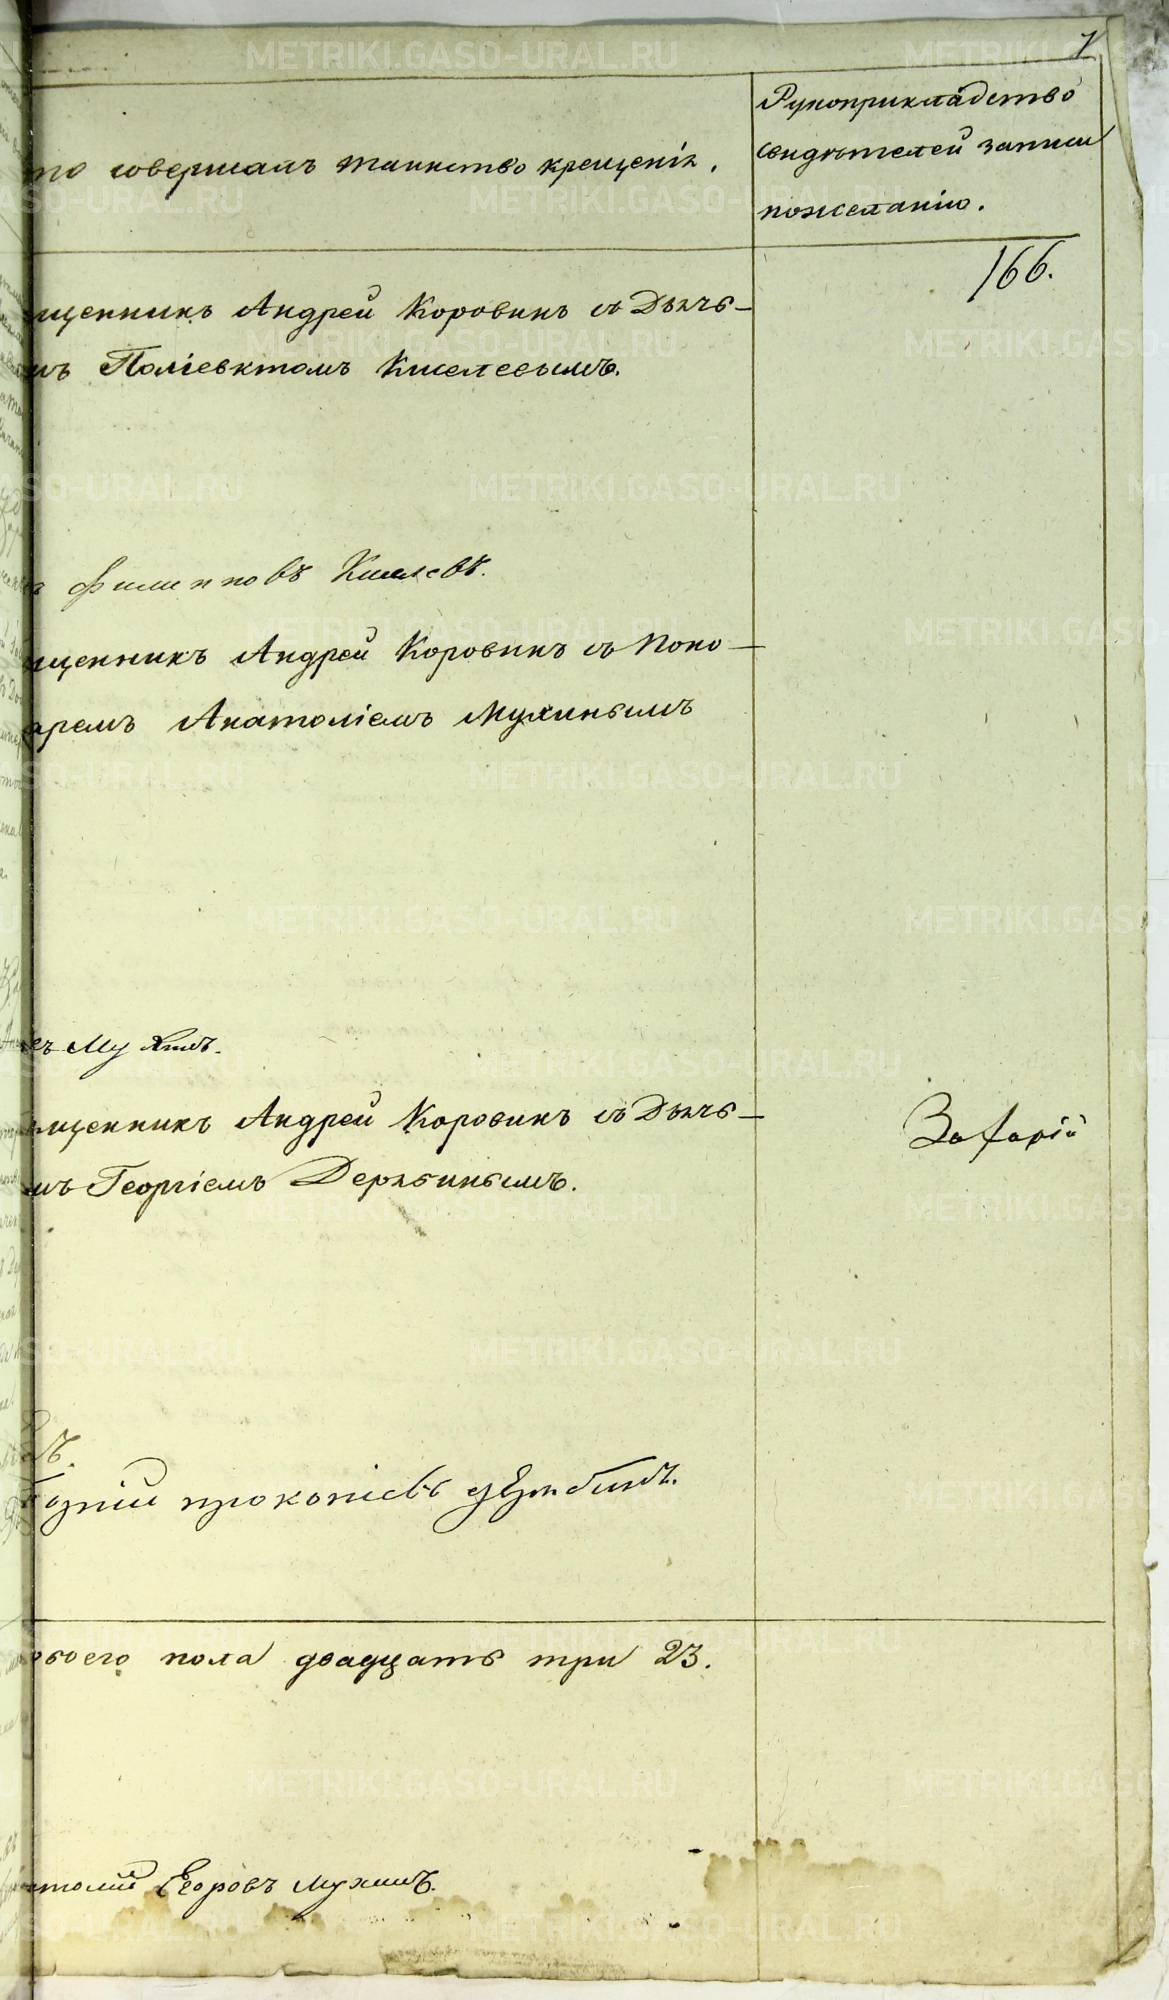 7
то совершалъ таинство крещенія.
Рукоприкладство
свидѣтелей записи
по желанію.
166.
щенникъ Андрей Коровинъ съ Дьяче-
мъ Поліевктомъ Киселевымъ.
Филипповъ Киселевъ.
щенникъ Андрей Коровинъ съ Поно-
аремъ Анатоліемъ Мухинымъ
въ Мухинъ.
щенникъ Андрей Коровинъ съ Дьяче-
мъ Георгіемъ Дерябинымъ.
Захарій
ъ.
Прокопіевъ
обоего пола двадцать три 23.
толій Егоровъ Мухинъ.
METRIKI.GASO-URAL.RU